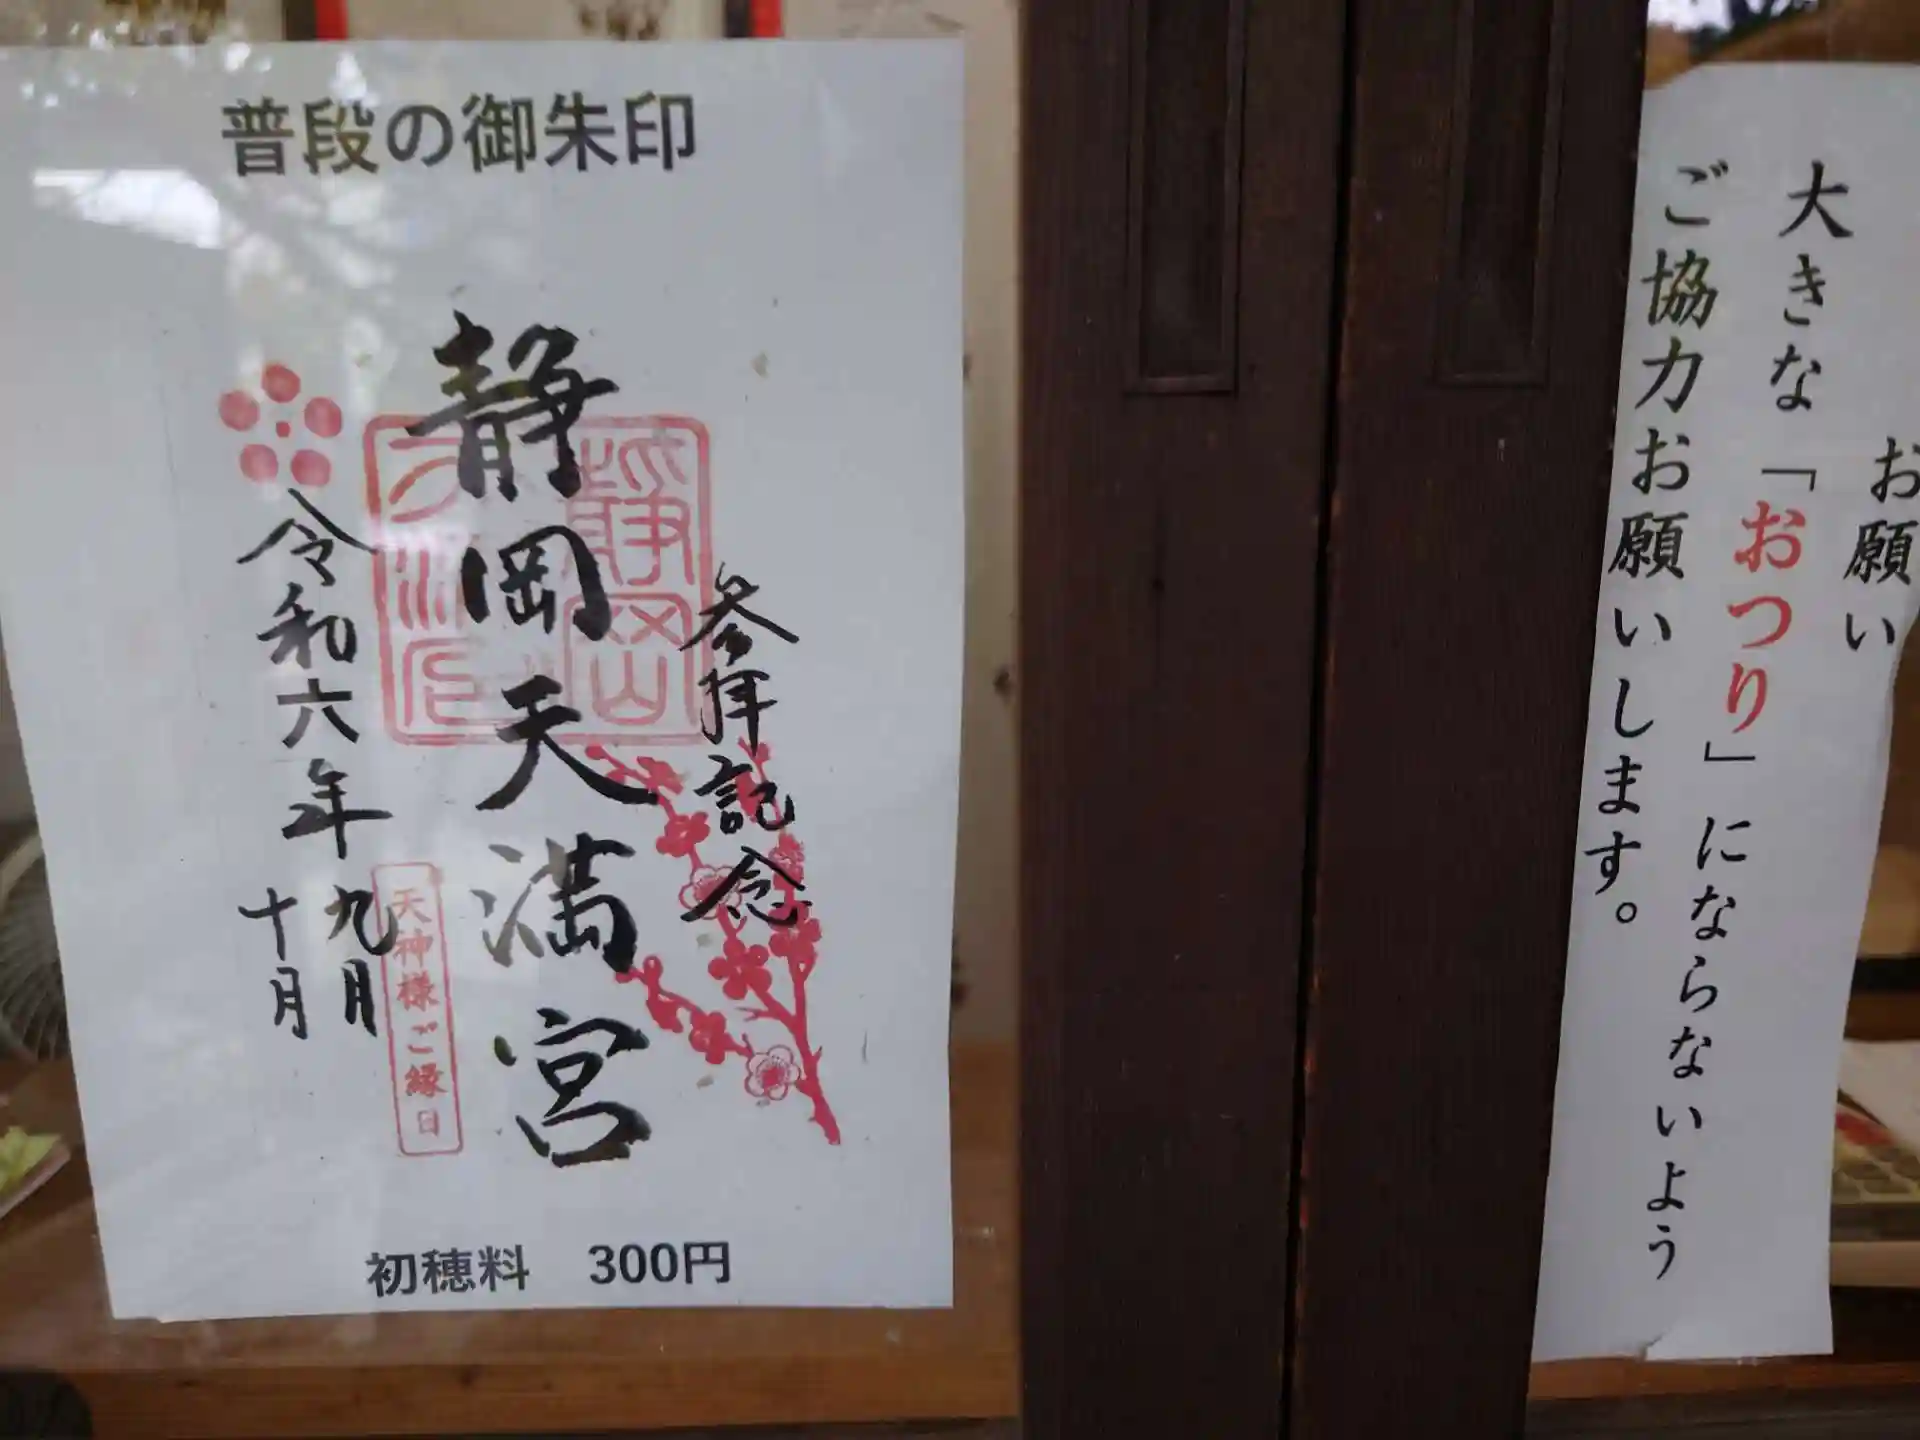 普段の御朱印
参拝記念
静岡天満宮
令和六年
九月
十月
天神様ご縁日
初穂料 300円
お願い
大きな「おつり」にならないよう
ご協力お願いします。